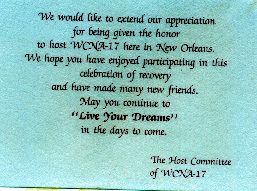 We would like to extend our appreciation
for being given the honor
to host WCNA-17 here in New Orleans.
We hope you have enjoyed participating in this
celebration of recovery
and have made many new friends.
May you continue to
"Live Your Dreams"
in the days to come.
The Host Committee
of WCNA-17